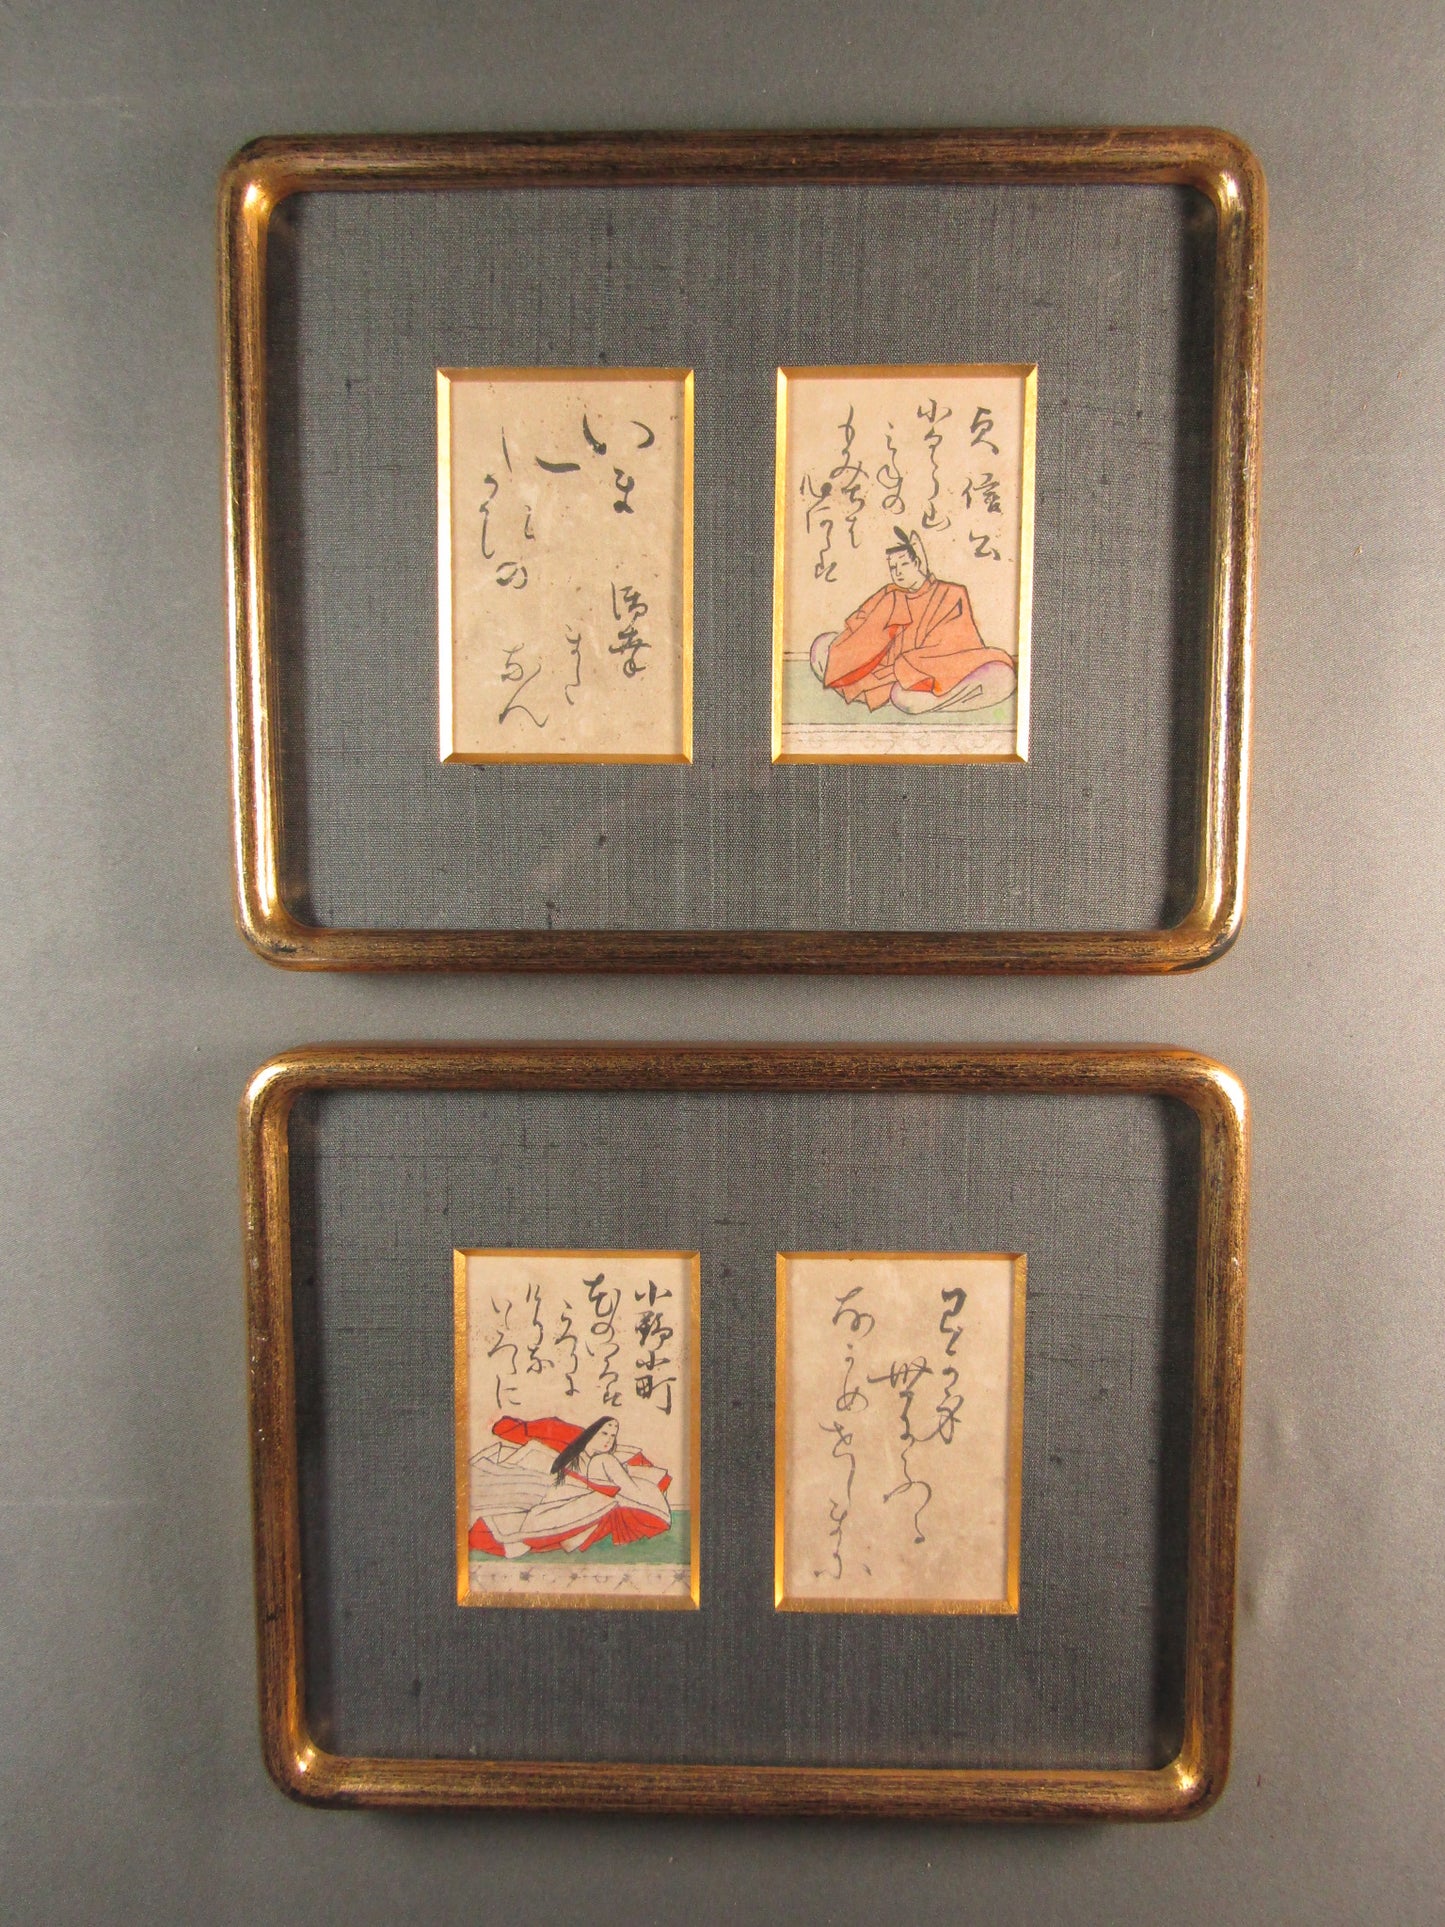 貞信公
小くら山
みねの
もみちは
心あらは
いま
御幸
一
また
なん
小野小町
花のいろは
うつりに
けりな
いたつらに
わか身
世にふる
なかめせしまに